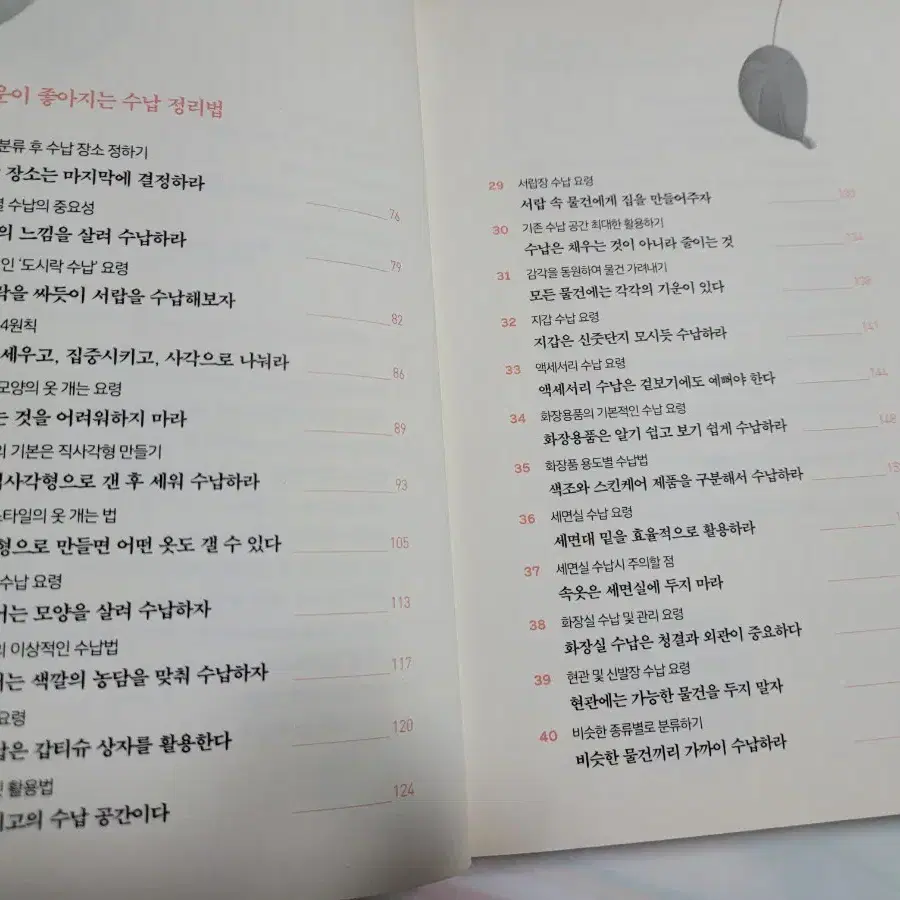 좋아지는 수납 정리법
분류 후 수납 장소 정하기
장소는 마지막에 결정하라
수납의 중요성 76
느낌을 살려 수납하라
'도시락 수납' 요령 79
싸듯이 서랍을 수납해보자
4원칙 82
세우고, 집중시키고, 사각으로 나눠라
모양의 옷 개는 요령 86
것을 어려워하지 마라
기본은 직사각형 만들기 89
갠 후 세워 수납하라
옷 개는 법 93
만들면 어떤 옷도 갤 수 있다
수납 요령 105
모양을 살려 수납하자
이상적인 수납법 113
색깔의 농담을 맞춰 수납하자
요령 117
갑티슈 상자를 활용한다
활용법 120
수납 공간이다
124
29 서랍장 수납 요령
서랍 속 물건에게 집을 만들어주자
30 기존 수납 공간 최대한 활용하기
수납은 채우는 것이 아니라 줄이는 것
31 감각을 동원하여 물건 가려내기
모든 물건에는 각각의 기운이 있다
32 지갑 수납 요령
지갑은 신줏단지 모시듯 수납하라 141
33 액세서리 수납 요령
액세서리 수납은 겉보기에도 예뻐야 한다 144
34 화장용품의 기본적인 수납 요령
화장용품은 알기 쉽고 보기 쉽게 수납하라 148
35 화장품 용도별 수납법
색조와 스킨케어 제품을 구분해서 수납하라
36 세면실 수납 요령
세면대 밑을 효율적으로 활용하라
37 세면실 수납시 주의할 점
속옷은 세면실에 두지 마라
38 화장실 수납 및 관리 요령
화장실 수납은 청결과 외관이 중요하다
39 현관 및 신발장 수납 요령
현관에는 가능한 물건을 두지 말자
40 비슷한 종류별로 분류하기
비슷한 물건끼리 가까이 수납하라